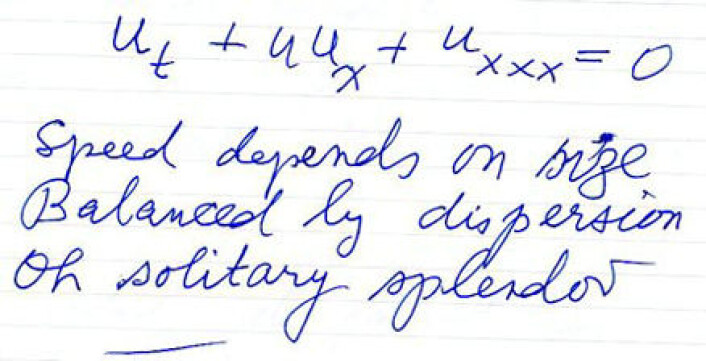 u_t + uu_x + u_xxx = 0
Speed depends on size
Balanced by dispersion
Oh solitary splendor